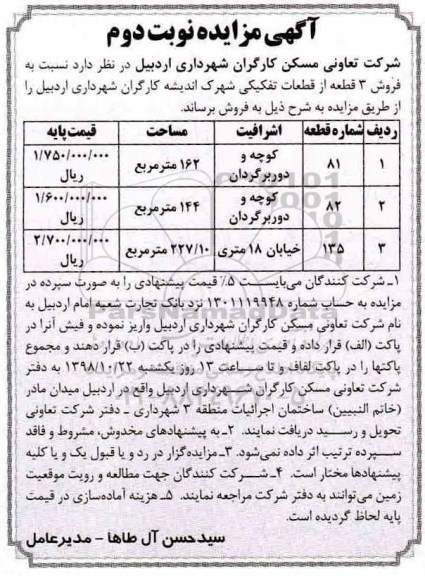 آگهی مزایده نوبت دوم
شرکت تعاونی مسکن کارگران شهرداری اردبیل در نظر دارد نسبت به
فروش ۳ قطعه از قطعات تفکیکی شهرک اندیشه کارگران شهرداری اردبیل را
از طریق مزایده به شرح ذیل به فروش برساند.
ردیف شماره قطعه اشرافیت مساحت قیمت پایه
۱ ۸۱ کوچه و دوربرگردان ۱۶۲ مترمربع ۱/۷۵۰/۰۰۰/۰۰۰ ریال
۲ ۸۲ کوچه و دوربرگردان ۱۴۴ مترمربع ۱/۶۰۰/۰۰۰/۰۰۰ ریال
۳ ۱۳۵ خیابان ۱۸ متری ۲۲۷/۱۰ مترمربع ۲/۷۰۰/۰۰۰/۰۰۰ ریال
۱ـ شرکت کنندگان می‌بایست ۵٪ قیمت پیشنهادی را به صورت سپرده در
مزایده به حساب شماره ۱۳۰۱۱۱۹۹۴۸ نزد بانک تجارت شعبه امام اردبیل به
نام شرکت تعاونی مسکن کارگران شهرداری اردبیل واریز نموده و فیش آنرا در
پاکت (الف) قرار داده و قیمت پیشنهادی را در پاکت (ب) قرار دهند و مجموع
پاکتها را در پاکت لفاف و تا ساعت ۱۳ روز یکشنبه ۱۳۹۸/۱۰/۲۲ به دفتر
شرکت تعاونی مسکن کارگران شهرداری اردبیل واقع در اردبیل میدان مادر
(خاتم النبیین) ساختمان اجرائیات منطقه ۳ شهرداری ـ دفتر شرکت تعاونی
تحویل و رسید دریافت نمایند. ۲ـ به پیشنهادهای مخدوش، مشروط و فاقد
سپرده ترتیب اثر داده نمی‌شود. ۳ـ مزایده‌گزار در رد و یا قبول یک و یا کلیه
پیشنهادها مختار است. ۴ـ شرکت کنندگان جهت مطالعه و رویت موقعیت
زمین می‌توانند به دفتر شرکت مراجعه نمایند. ۵ـ هزینه آماده‌سازی در قیمت
پایه لحاظ گردیده است.
سیدحسن آل طاها - مدیرعامل
ParsNamadData